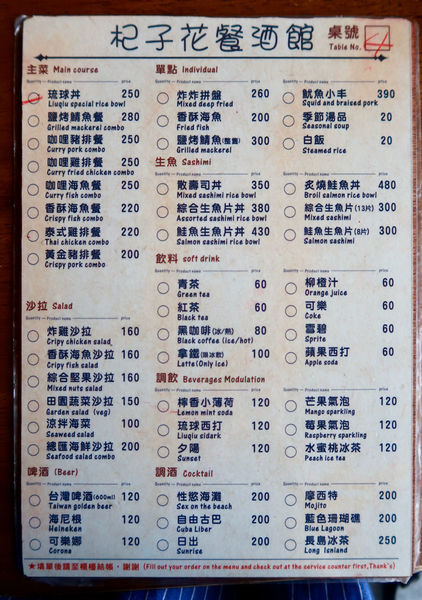 杞子花餐酒館
桌號
Table No.
主菜 Main course
Quantity Product name price
琉球丼 250
Liuqiu special rice bowl
鹽烤鯖魚餐 280
Grilled mackerel combo
咖哩豬排餐 250
Curry pork combo
咖哩雞排餐 250
Curry fried chicken combo
咖哩魚餐 250
Curry fish combo
香酥海魚餐 220
Crispy fish combo
泰式雞排餐 220
Thai chicken combo
黃金豬排餐 200
Crispy pork combo
沙拉 Salad
Quantity Product name price
炸雞沙拉 160
Cripy chicken salad
香酥海魚沙拉 160
Cripy fish salad
綜合堅果沙拉 160
Mixed nuts salad
田園蔬菜沙拉 150
Garden salad (veg)
涼拌海菜 100
Seaweed salad
總匯海鮮沙拉 200
Seafood salad combo
啤酒 (Beer)
Quantity Product name price
台灣啤酒(600ml) 120
Taiwan golden beer
海尼根 120
Heineken
可樂娜 120
Corona
單點 Individual
Quantity Product name price
炸炸拼盤 260
Mixed deep fried
香酥海魚 200
Fried fish
鹽烤鯖魚(整隻) 300
Grilled mackerel
魷魚小丰 390
Squid and braised pork
季節湯品 20
Seasonal soup
白飯 20
Steamed rice
生魚 Sashimi
Quantity Product name price
散壽司丼 350
Mixed sashimi rice bowl
綜合生魚片丼 380
Assorted sashimi rice bowl
鮭魚生魚片丼 430
Salmon sashimi rice bowl
炙燒鮭魚丼 480
Broil salmon rice bowl
綜合生魚片(13片) 300
Mixed sashimi
鮭魚生魚片(8片) 300
Salmon sashimi
飲料 soft drink
Quantity Product name price
青茶 60
Green tea
紅茶 60
Black tea
黑咖啡(冰/熱) 80
Black coffee (ice/hot)
拿鐵(限冰飲) 100
Latte(Only ice)
柳橙汁 60
Orange juice
可樂 60
Coke
雪碧 60
Sprite
蘋果西打 60
Apple soda
調飲 Beverages Modulation
Quantity Product name price
檸香小薄荷 120
Lemon mint soda
琉球西打 120
Liuqiu sidark
夕陽 120
Sunset
芒果氣泡 120
Mango sparkling
莓果氣泡 120
Raspberry sparkling
水蜜桃冰茶 120
Peach ice tea
調酒 Cocktail
Quantity Product name price
性慾海灘 200
Sex on the beach
自由古巴 200
Cuba Liber
日出 200
Sunrise
摩西特 200
Mojito
藍色珊瑚礁 200
Blue Lagoon
長島冰茶 250
Long Isniand
★填單後請至櫃檯結帳，謝謝 (Fill out your order on the menu and check out at the service counter first,Thank's)